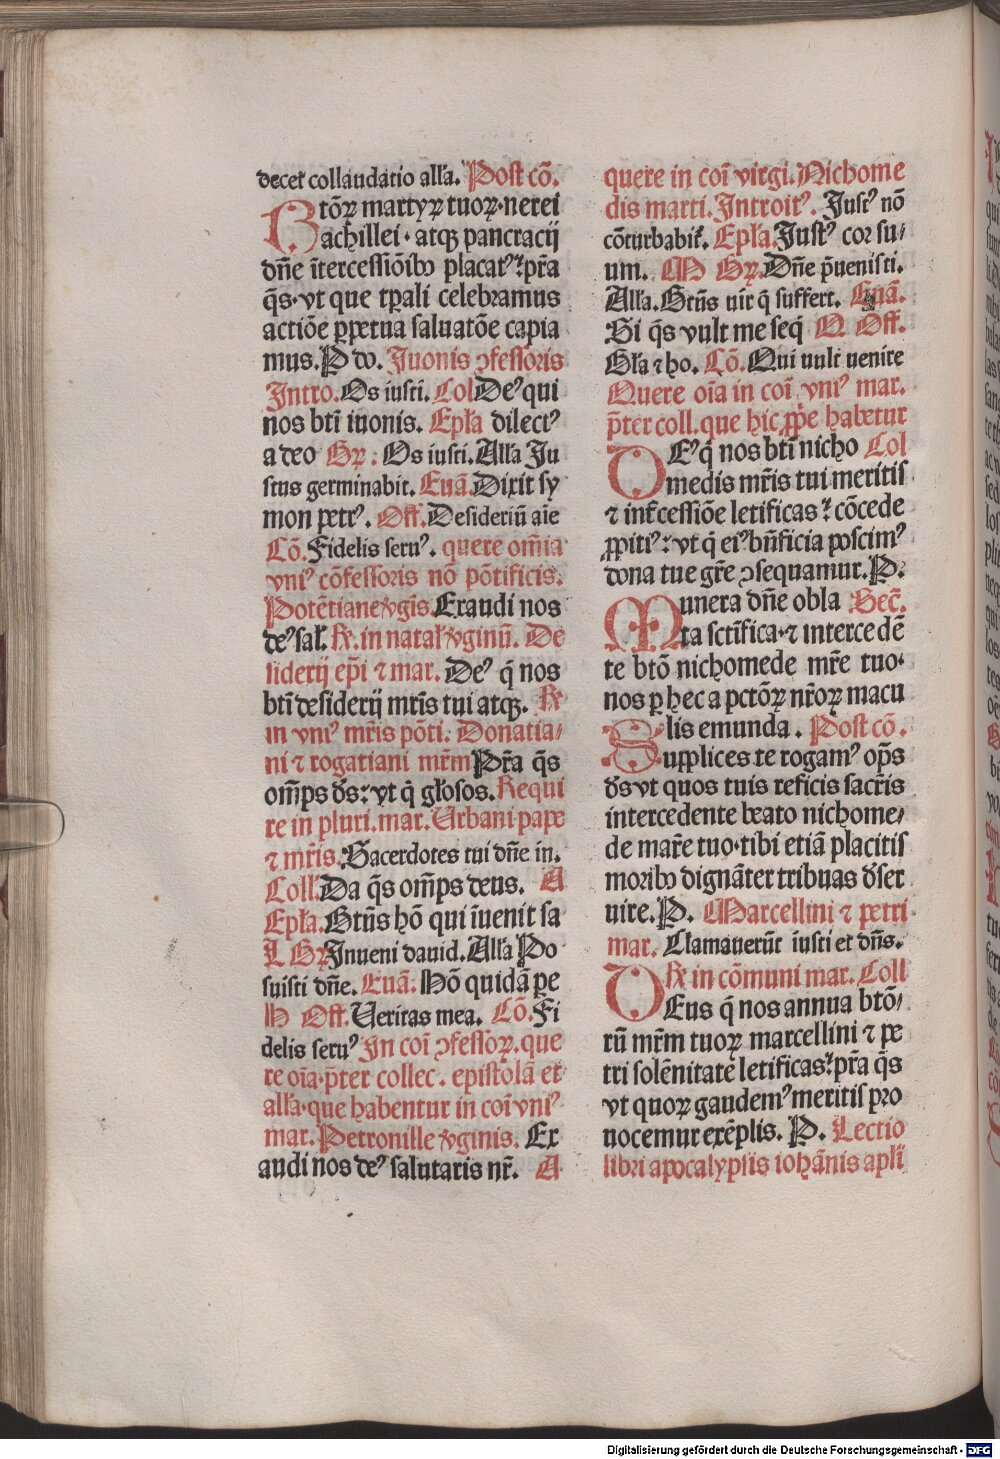 decet collaudatio alľa. Post cō.
Btōꝝ martyꝝ tuoꝝ·nerei
achillei· atqꝫ pancracij
dn̄e ītercessiōibꝰ placatꝰ:pr̄a
q̄s·vt que tꝑali celebramus
actiōe ꝑpetua saluatōe capia
mus.P do. Juonis ↄfessoris
Intro.Os iusti.Col Deꝰ qui
nos bti̅ iuonis. Epľa dilectꝰ
a deo Gꝝ: Os iusti.Alľa Ju
stus germinabit. Euā.Dixit sy
mon petrꝰ. Off.Desideriū aīe
Cō.Fidelis seruꝰ. quere om̄ia
vniꝰ cōfessoris nō pōtificis.
Potētiane ꝟgīs. Exaudi nos
deꝰ sal. R̄. in natal ꝟginū. De
siderij ep̄i ⁊ mar. Deꝰ q̄ nos
bti̅ desiderij mr̄is tui atqꝫ. R̄
in vniꝰ mr̄is pōti. Donatia⸗
ni ⁊ rogatiani mr̄m Pr̄a q̄s
om̄ps ds̄:vt q̄ glōsos. Requi
re in pluri.mar.Urbani pape
⁊ mr̄is. Sacerdotes tui dn̄e in.
Coll.Da q̄s om̄ps deus. A
Epľa.Btūs hō qui īuenit sa
L Gꝝ Inueni dauid.Alľa Po
suisti dn̄e. Euā. Hō quidā pe
H Off.Ueritas mea. Cō.Fi
delis seruꝰ In coī ↄfessoꝝ.que
re oīa·p̄ter collec. epistolā et
alľa·que habentur in coī vniꝰ
mar.Petronille ꝟginis. Ex
audi nos deꝰ salutaris nr̄. A
quere in coī virgi. Nichome
dis marti.Introitꝰ. Justꝰ nō
cōturbabit. Epľa.Justꝰ cor su⸗
um. M Gꝝ.Dn̄e p̄uenisti.
Alľa.Btūs uir q̄ suffert. Euā.
Si q̄s vult me seq̄ N Off.
Glā ⁊ ho. Cō.Qui uult uenire
Quere oīa in coī vniꝰ mar.
p̄ter coll.que hic ꝓpe habetur
DEꝰ q̄ nos bti̅ nicho Col
medis mr̄is tui meritis
⁊ int̄cessiōe letificas: cōcede
ꝓpitiꝰ:vt q̄ eiꝰ bn̄ficia poscimꝰ
dona tue gr̄e ↄsequamur.P.
Munera dn̄e obla Sec̄.
ta sctīfica·⁊ intercedē
te btō nichomede mr̄e tuo·
nos ꝑ hec a pctōꝝ nr̄oꝝ macu
lis emunda. Post cō.
Supplices te rogamꝰ op̄s
ds̄ vt quos tuis reficis sacr̄is
intercedente beato nichome⸗
de mar̄e tuo·tibi etiā placitis
moribꝰ dignāter tribuas ds̄er
uire.P. Marcellini ⁊ petri
mar. Clamauerūt iusti et dn̄s.
R̄ in cōmuni mar. Coll
DEus q̄ nos annua btō⸗
rū mr̄m tuoꝝ marcellini ⁊ pe
tri solēnitate letificas:pr̄a q̄s
vt quoꝝ gaudemꝰ meritis pro
uocemur exēplis. P. Lectio
libri apocalypsis iohānis apľi
Digitalisierung gefördert durch die Deutsche Forschungsgemeinschaft - DFG